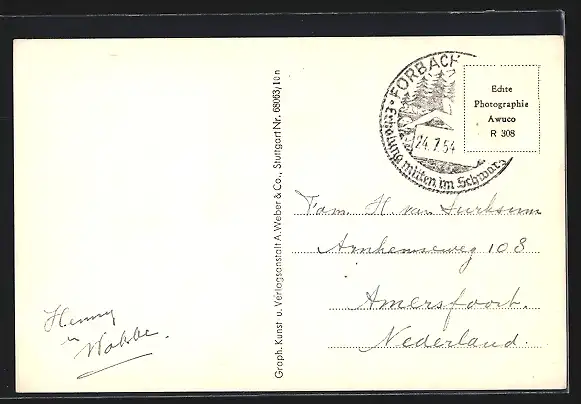 FORBACH
Erholung mitten im Schwarz
24.7.54
Echte
Photographie
Awuco
R 308
Graph. Kunst u. Verlagsanstalt A. Weber & Co., Stuttgart Nr. 68063/10n
Fam. H van
Arnhemseweg 108
Amersfoort.
Nederland.
Henny
en
Wobbe.